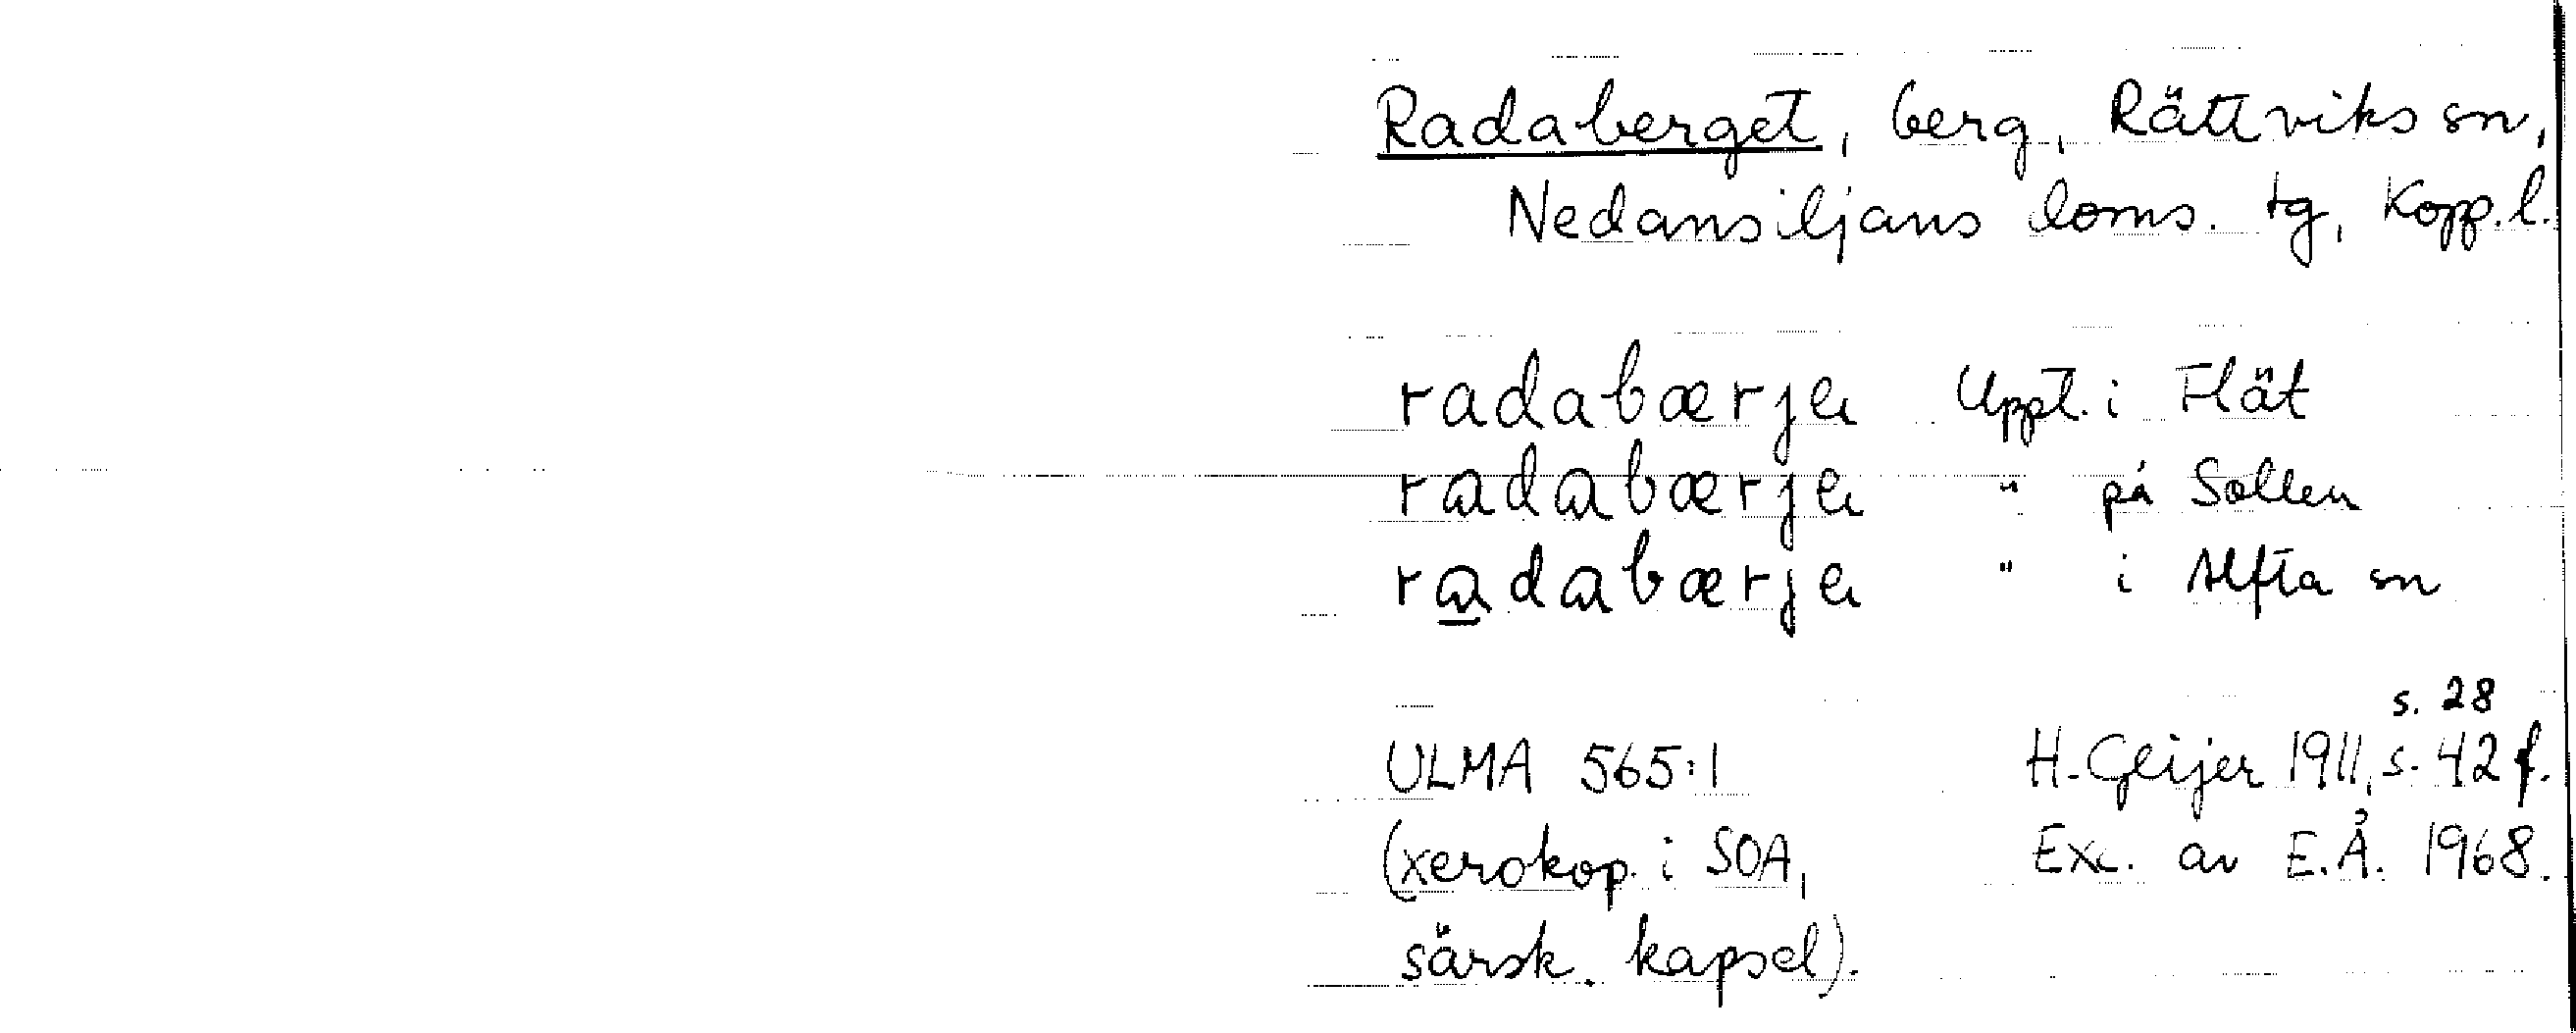 Radaberget, berg, Rättviks sn,
Nedansiljans doms. tg, Kopp. l.
radabærje Uppt. i Flät
radabærje " på Sollen
radabærje " i Alfta sn
s. 28
ULMA 565:1 H. Geijer 1911, s. 42 f.
(xerokop. i SOA, Exc. av E.Å. 1968.
särsk. kapsel).